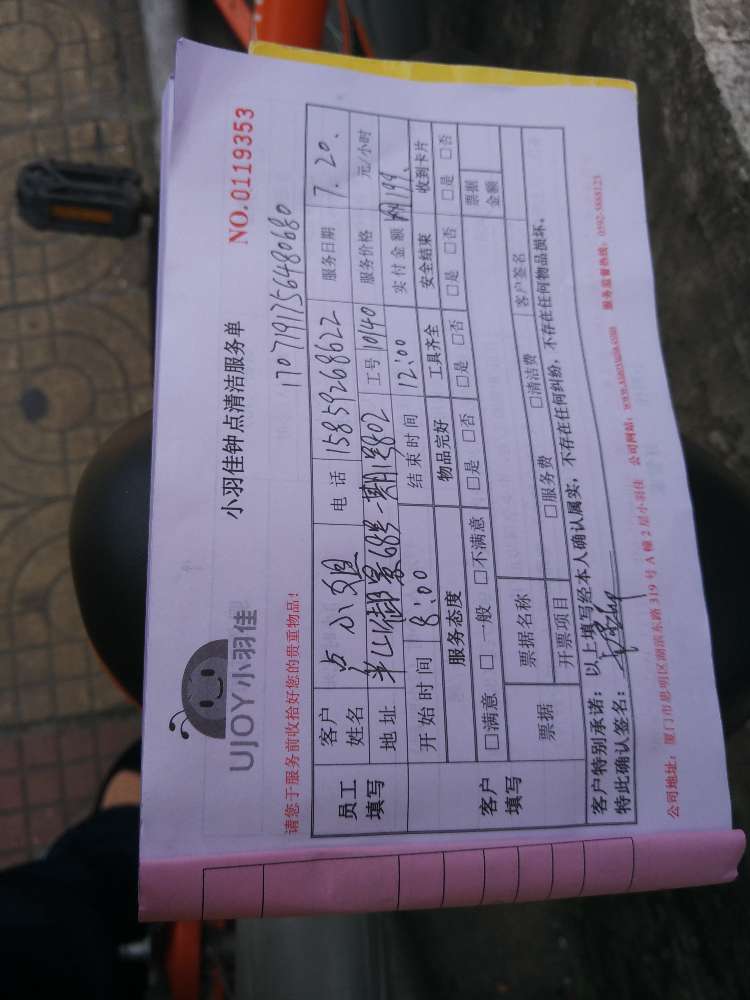 UJOY小羽佳
小羽佳钟点清洁服务单
NO.0119353
请您于服务前收拾好您的贵重物品！
1707191756480680
员工填写
客户姓名 卢小姐 电话 15859268622 服务日期 7.20.
地址 半山御景68号一期 802 工号 10140 服务价格 元/小时
开始时间 8:00 结束时间 12:00 实付金额 199
客户填写
服务态度 物品完好 工具齐全 安全结束 收到卡片
□满意 □一般 □不满意 □是 □否 □是 □否 □是 □否 □是 □否
票据 票据名称 票据金额
开票项目 □服务费 □清洁费 客户签名
客户特别承诺：以上填写经本人确认属实，不存在任何纠纷，不存在任何物品损坏。
特此确认签名：
公司地址：厦门市思明区湖滨东路319号A幢2层小羽佳 公司网站：www.xiaoyujia.com 服务监督热线：0592-5868123